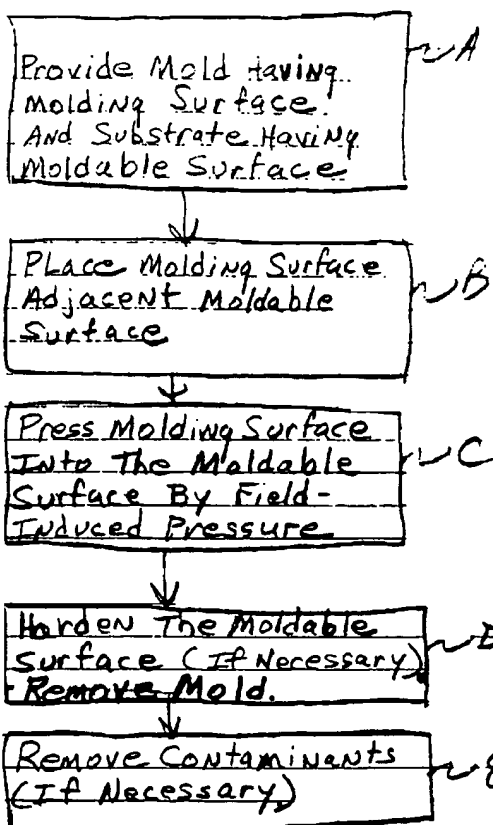 A
Provide Mold Having
Molding Surface
And Substrate Having
Moldable Surface
Place Molding Surface
Adjacent Moldable
Surface
B
Press Molding Surface
Into The Moldable
Surface By Field-
Induced Pressure
C
Harden The Moldable
Surface (If Necessary)
Remove Mold.
Remove Contaminants
(If Necessary)